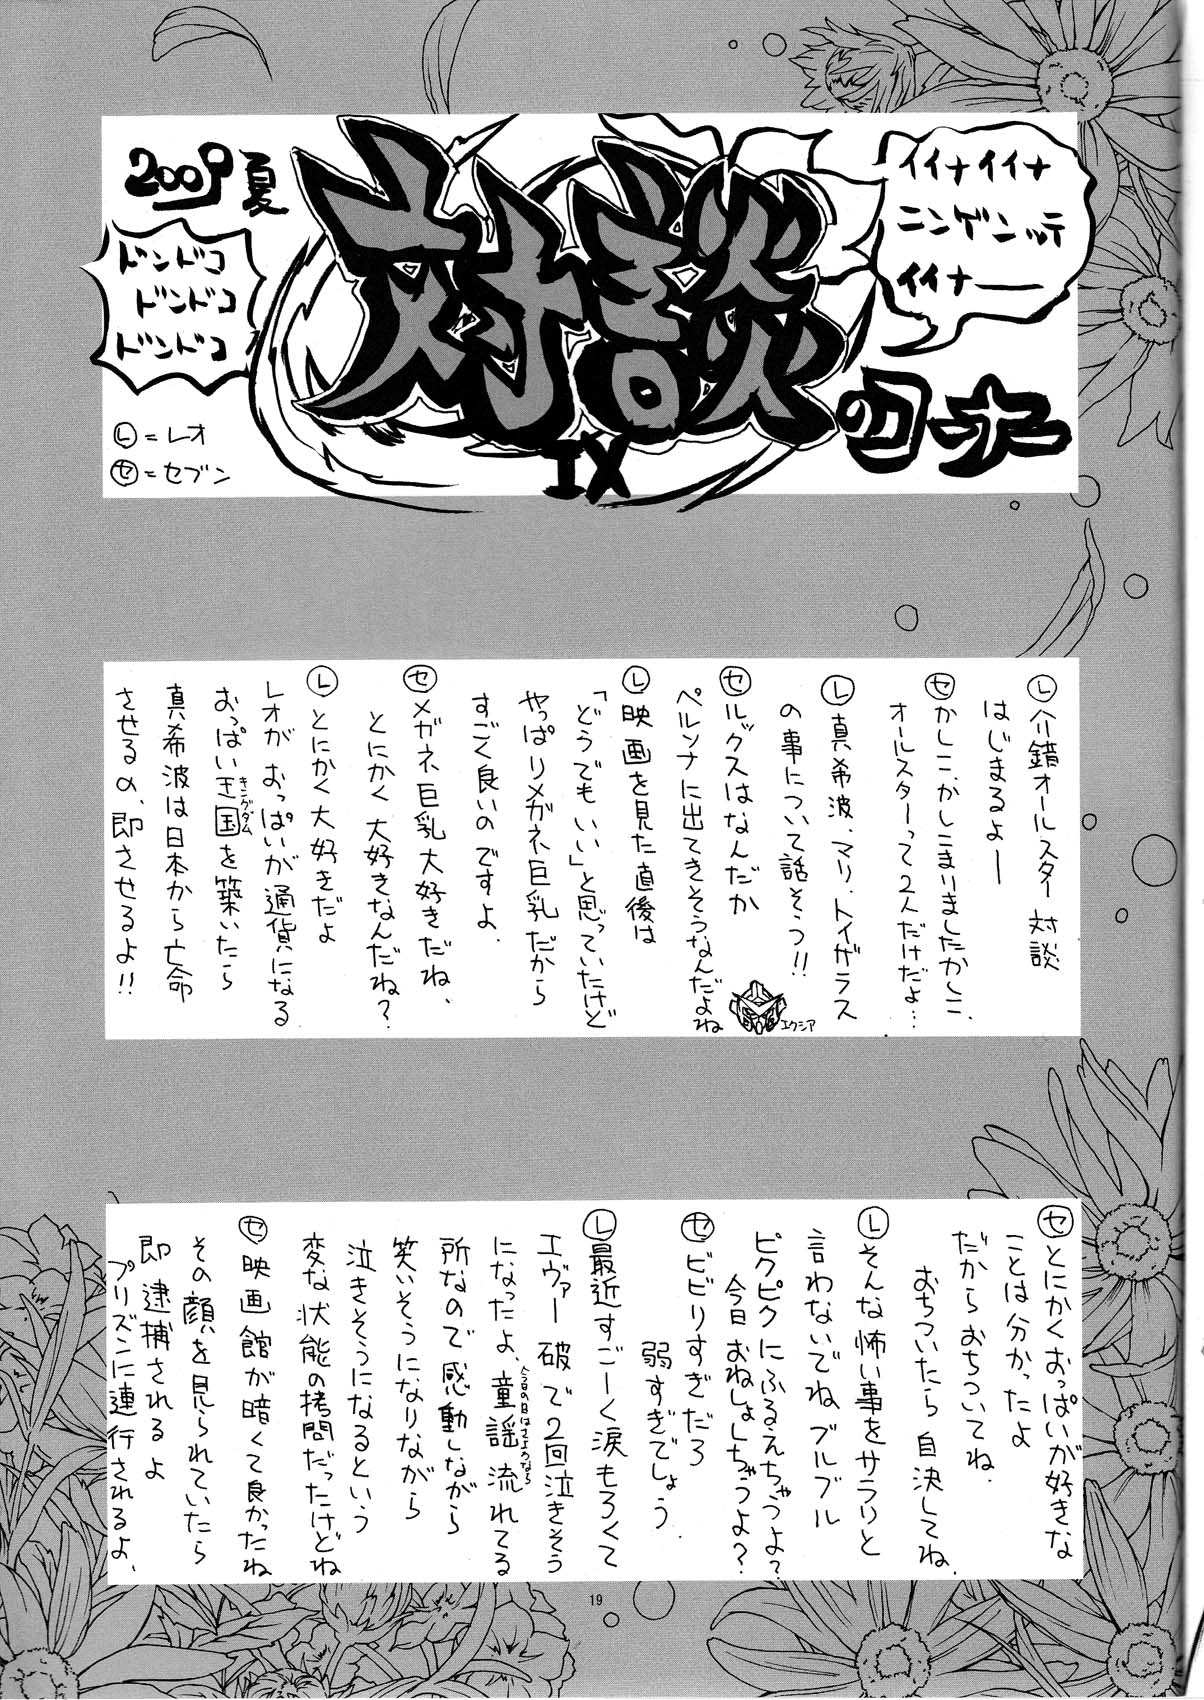 2009夏
対談
IX
のコーナー
イイナイイナ
ニンゲンッテ
イイナー
ドンドコ
ドンドコ
ドンドコ
Ⓛ=レオ
㋝=セブン
Ⓛ介錯オールスター対談
はじまるよー
㋝かしこ、かしこまりましたかしこ、
オールスターって2人だけだよ…
Ⓛ真希波、マリ、トイザラス
の事について話そう!!
㋝ルックスはなんだか
ペルソナに出てきそうなんだよね
エクシア
Ⓛ映画を見た直後は
「どうでもいい」と思っていたけど
やっぱりメガネ巨乳だから
すごく良いのですよ、
㋝メガネ巨乳大好きだね、
とにかく大好きなんだね?
Ⓛとにかく大好きだよ
レオがおっぱいが通貨になる
おっぱい王国を築いたら
キングダム
真希波は日本から亡命
させるの、即させるよ!!
㋝とにかくおっぱいが好きな
ことは分かったよ
だからおちついてね、
おちついたら自決してね、
Ⓛそんな怖い事をサラリと
言わないでねブルブル
ピクピクにふるえちゃうよ?
今日おねしょしちゃうよ?
㋝ビビリすぎだろ
弱すぎでしょう
Ⓛ最近すごーく涙もろくて
エヴァー破で2回泣きそう
になったよ、童謡流れてる
今日の日はさようなら
所なので感動しながら
笑いそうになりながら
泣きそうになるという
変な状態の拷問だったけどね
㋝映画館が暗くて良かったね
その顔を見られていたら
即逮捕されるよ
プリズンに連行されるよ、
19